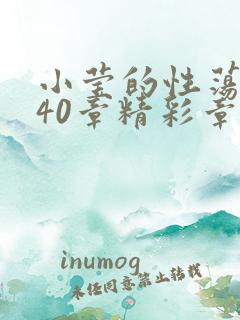 小莹的性荡
40章精彩章
inumog
未经同意禁止转载